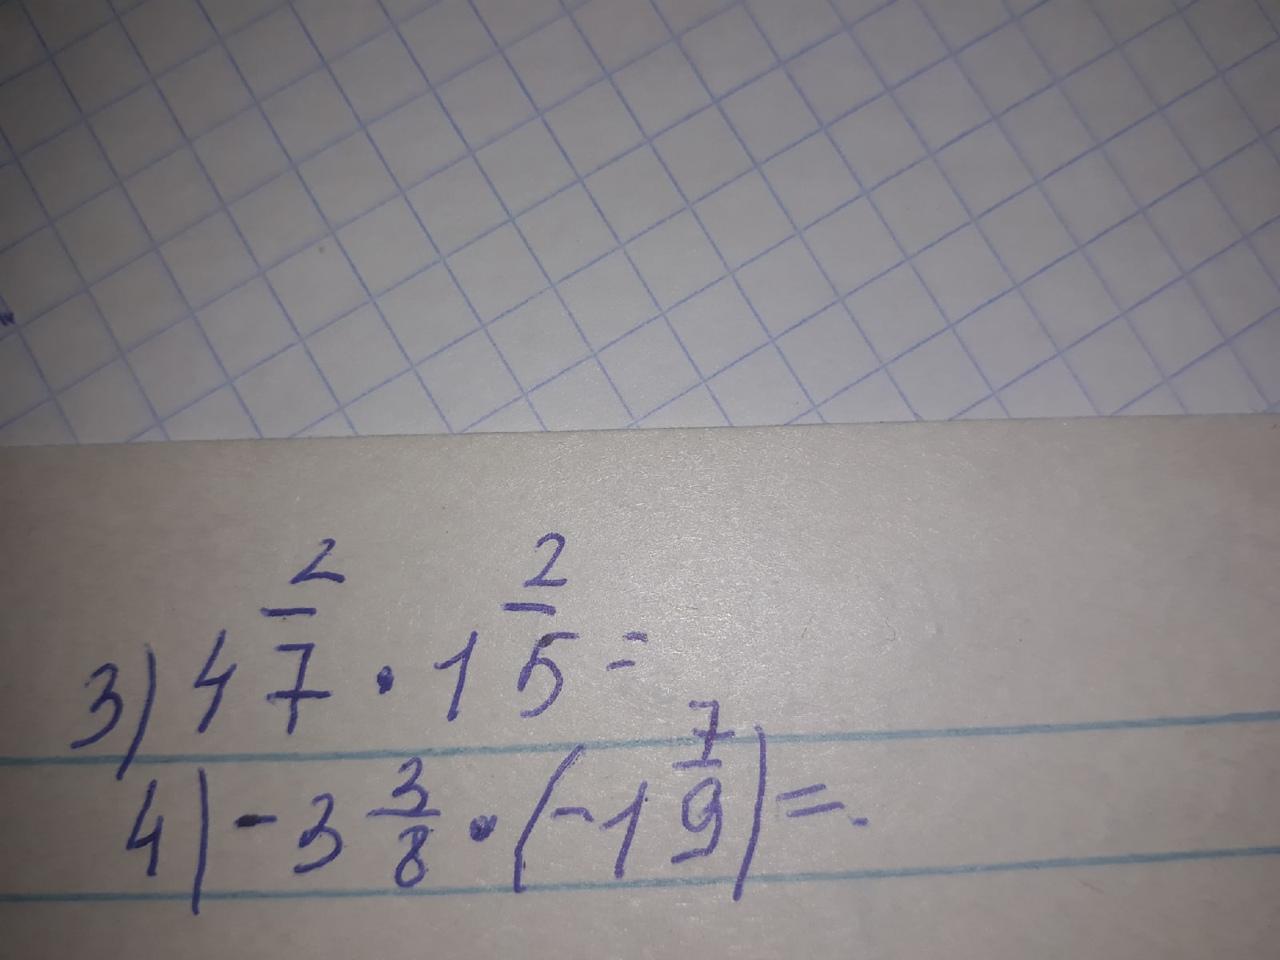 3) 4 2/7 · 1 2/5 =
4) - 3 3/8 · (-1 7/9) = .